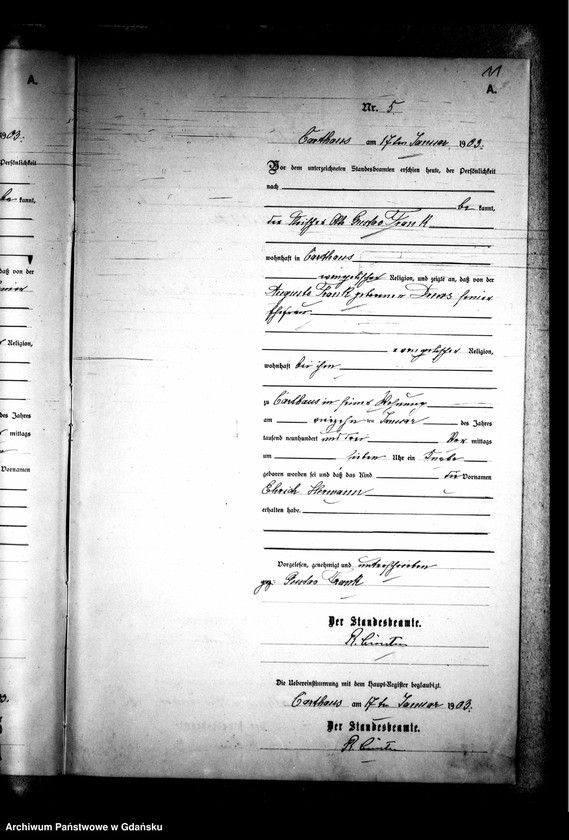 11
A.
Nr. 5
Carthaus am 17ten Januar 1903.
Vor dem unterzeichneten Standesbeamten erschien heute, der Persönlichkeit
nach
be kannt,
der Gustav Frank
wohnhaft in Carthaus
evangelischer Religion, und zeigte an, daß von der
Auguste Frank geborener seiner
Ehefrau
evangelischer Religion,
wohnhaft bei ihm
zu Carthaus in seiner Wohnung
am ten Januar des Jahres
tausend neunhundert und drei Vor mittags
um sieben Uhr ein Knabe
geboren worden sei und daß das Kind die Vornamen
Hermann
erhalten habe.
Vorgelesen, genehmigt und unterschrieben
gez. Gustav Frank
Der Standesbeamte.
Die Uebereinstimmung mit dem Haupt-Register beglaubigt.
Carthaus am 17ten Januar 1903.
Der Standesbeamte.
A.
1903.
Persönlichkeit
be kannt,
daß von der
Religion,
des Jahres
mittags
Vornamen
Archiwum Państwowe w Gdańsku